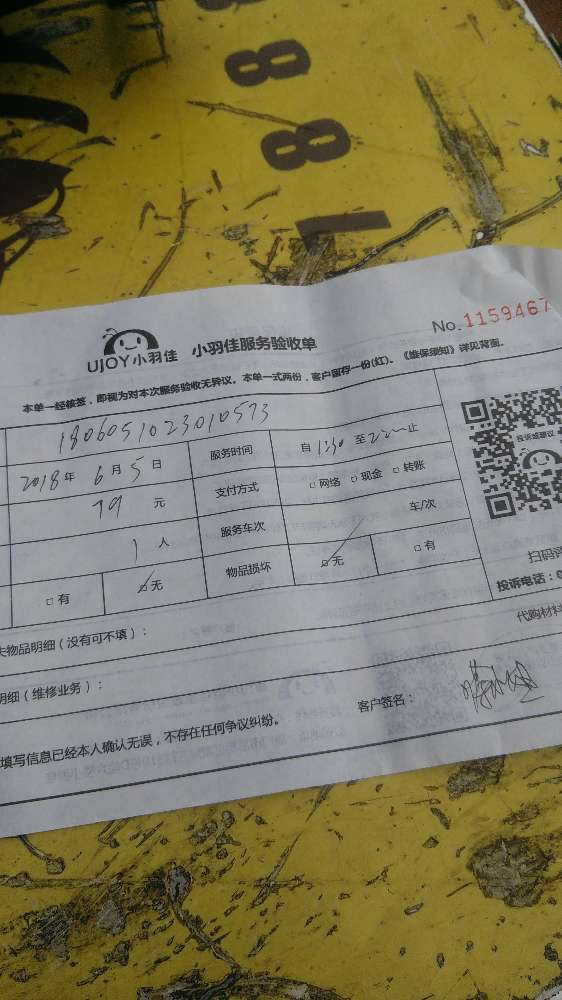 888
1
No.1159467
UJOY小羽佳 小羽佳服务验收单
本单一经核签,即视为对本次服务验收无异议。本单一式两份,客户留存一份(红)。《维保须知》详见背面。
1806051023010573
2018年 6月5日 服务时间 自 至 止
79元 支付方式 □网络 □现金 □转账
1人 服务车次 车/次
□有 □无 物品损坏 □无 □有
投诉或建议
扫码评
投诉电话:0
失物品明细(没有可不填): 代购材料
明细(维修业务):
填写信息已经本人确认无误,不存在任何争议纠纷。 客户签名: